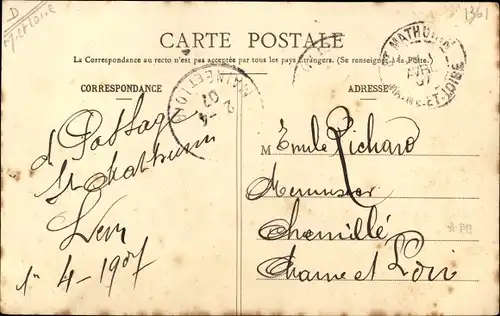 D
M et Loire
1361
CARTE POSTALE
La Correspondance au recto n'est pas acceptée par tous les pays étrangers. (Se renseigner à la Poste.)
CORRESPONDANCE
ADRESSE
ST MATHURIN
AVRIL 07
MAINE-ET-LOIRE
MAINE ET LOIRE
2 -4
07
d Passage
St Mathurin
1er 4-1907
M Emile Richard
Menuisier
Chemillé
Maine et Loire